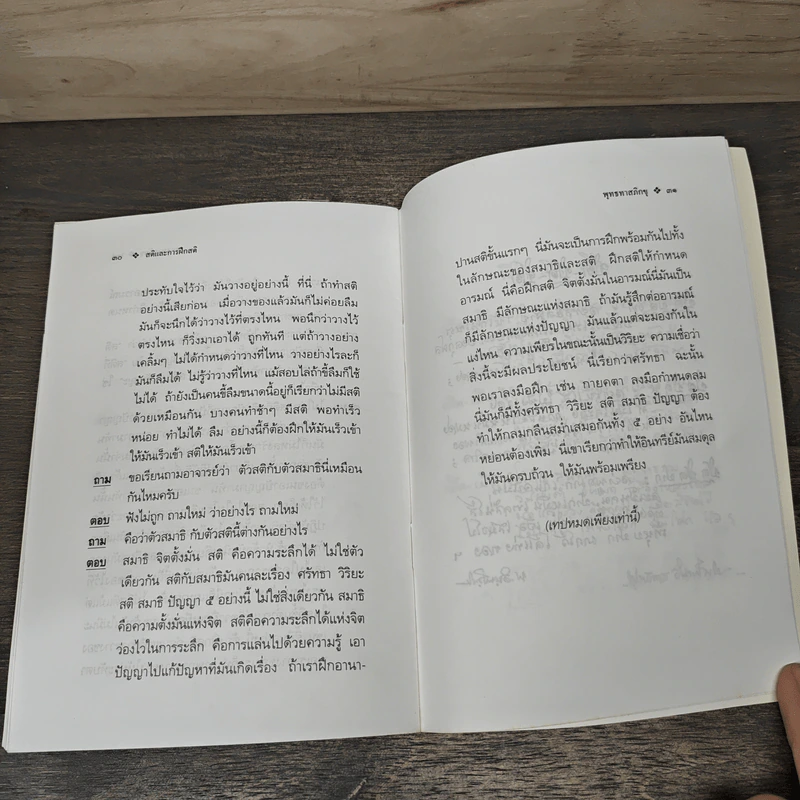 ๓๐ ❖ สติและการฝึกสติ
ประทับใจไว้ว่า มันวางอยู่อย่างนี้ ที่นี่ ถ้าทำสติ
อย่างนี้เสียก่อน เมื่อวางของแล้วมันก็ไม่ค่อยลืม
มันก็จะนึกได้ว่าวางไว้ที่ตรงไหน พอนึกว่าวางไว้
ตรงไหน ก็วิ่งมาเอาได้ ถูกทันที แต่ถ้าวางอย่าง
เคลิ้มๆ ไม่ได้กำหนดว่าวางที่ไหน วางอย่างไรละก็
มันก็ลืมได้ ไม่รู้ว่าวางที่ไหน แม้สอบไล่ถ้าขี้ลืมก็ใช้
ไม่ได้ ถ้ายังเป็นคนขี้ลืมขนาดนี้อยู่ก็เรียกว่าไม่มีสติ
ด้วยเหมือนกัน บางคนทำช้าๆ มีสติ พอทำเร็ว
หน่อย ทำไม่ได้ ลืม อย่างนี้ก็ต้องฝึกให้มันเร็วเข้า
ให้มันเร็วเข้า สติให้มันเร็วเข้า
ถาม ขอเรียนถามอาจารย์ว่า ตัวสติกับตัวสมาธินี่เหมือน
กันไหมครับ
ตอบ ฟังไม่ถูก ถามใหม่ ว่าอย่างไร ถามใหม่
ถาม คือว่าตัวสมาธิ กับตัวสตินี้ต่างกันอย่างไร
ตอบ สมาธิ จิตตั้งมั่น สติ คือความระลึกได้ ไม่ใช่ตัว
เดียวกัน สติกับสมาธิมันคนละเรื่อง ศรัทธา วิริยะ
สติ สมาธิ ปัญญา ๕ อย่างนี้ ไม่ใช่สิ่งเดียวกัน สมาธิ
คือความตั้งมั่นแห่งจิต สติคือความระลึกได้แห่งจิต
ว่องไวในการระลึก คือการแล่นไปด้วยความรู้ เอา
ปัญญาไปแก้ปัญหาที่มันเกิดเรื่อง ถ้าเราฝึกอานา-
พุทธทาสภิกขุ ❖ ๓๑
ปานสติขั้นแรกๆ นี่มันจะเป็นการฝึกพร้อมกันไปทั้ง
ในลักษณะของสมาธิและสติ ฝึกสติให้กำหนด
อารมณ์ นี่คือฝึกสติ จิตตั้งมั่นในอารมณ์นี่มันเป็น
สมาธิ มีลักษณะแห่งสมาธิ ถ้ามันรู้สึกต่ออารมณ์
ก็มีลักษณะแห่งปัญญา มันแล้วแต่จะมองกันใน
แง่ไหน ความเพียรในขณะนั้นเป็นวิริยะ ความเชื่อว่า
สิ่งนี้จะมีผลประโยชน์ นี่เรียกว่าศรัทธา ฉะนั้น
พอเราลงมือฝึก เช่น กายคตา ลงมือกำหนดลม
นี่มันก็มีทั้งศรัทธา วิริยะ สติ สมาธิ ปัญญา ต้อง
ทำให้กลมกลืนสม่ำเสมอกันทั้ง ๕ อย่าง อันไหน
หย่อนต้องเพิ่ม นี่เขาเรียกว่าทำให้อินทรีย์มันสมดุล
ให้มันครบถ้วน ให้มันพร้อมเพรียง
(เทปหมดเพียงเท่านี้)